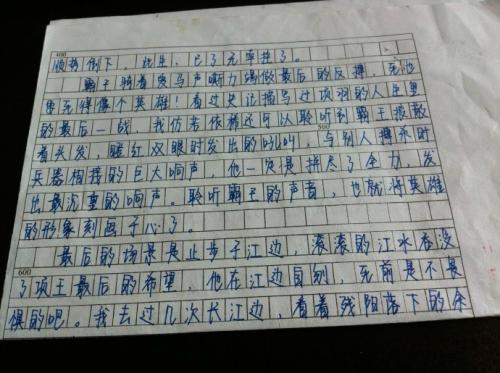 400
顺势倒下。此生，已了无牵挂了。
霸王骑着乌马声嘶力竭做最后的反搏，死也
要死得像个英雄！看过史记描写过项羽的人生里
的最后一战，我仿若依稀还可以聆听到霸王披散
500
着头发，瞳红双眼时发出的吼叫，与别人搏杀时
兵器相接的巨大响声，他一定是拼尽了全力，发
出最沉重的响声。聆听霸王的声音，也就将英雄
的形象刻画于心了。
最后的场景是止步于江边，滚滚的江水吞没
600
了项王最后的希望，他在江边自刎，死前是不是
悮的吧。我去过几次长江边，看着残阳落下的余